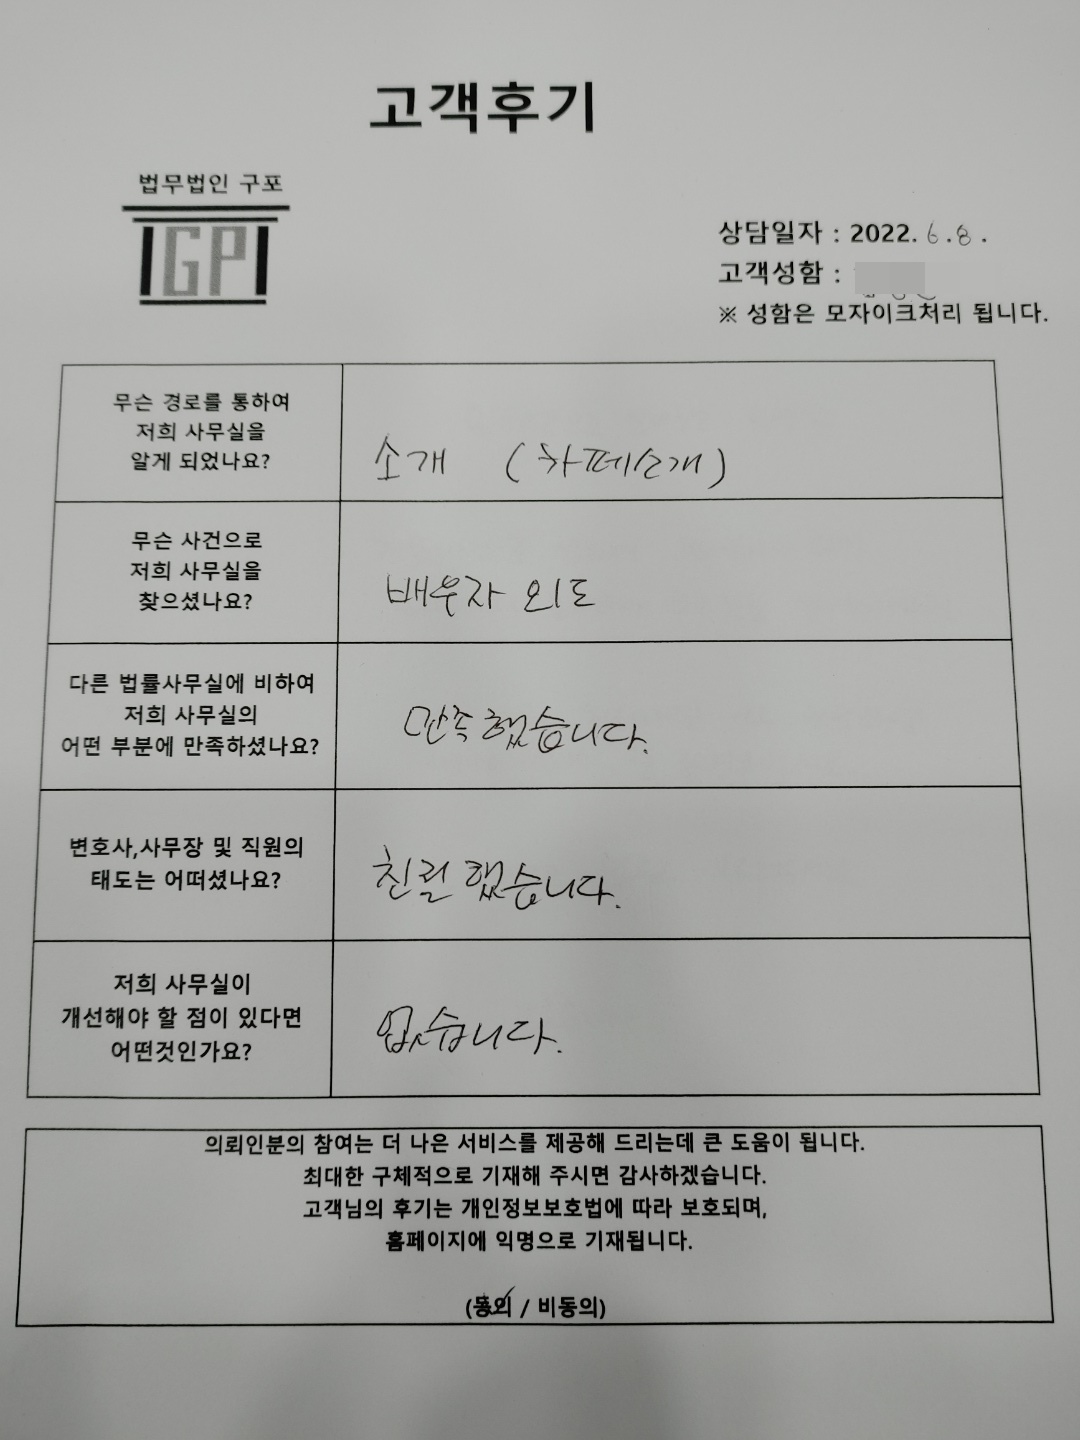 고객후기
법무법인 구포
IGPI
상담일자 : 2022. 6. 8.
고객성함 :
※ 성함은 모자이크처리 됩니다.
무슨 경로를 통하여
저희 사무실을
알게 되었나요?
소개 (카페소개)
무슨 사건으로
저희 사무실을
찾으셨나요?
배우자 외도
다른 법률사무실에 비하여
저희 사무실의
어떤 부분에 만족하셨나요?
만족했습니다.
변호사,사무장 및 직원의
태도는 어떠셨나요?
친절했습니다.
저희 사무실이
개선해야 할 점이 있다면
어떤것인가요?
없습니다.
의뢰인분의 참여는 더 나은 서비스를 제공해 드리는데 큰 도움이 됩니다.
최대한 구체적으로 기재해 주시면 감사하겠습니다.
고객님의 후기는 개인정보보호법에 따라 보호되며,
홈페이지에 익명으로 기재됩니다.
(동의 / 비동의)